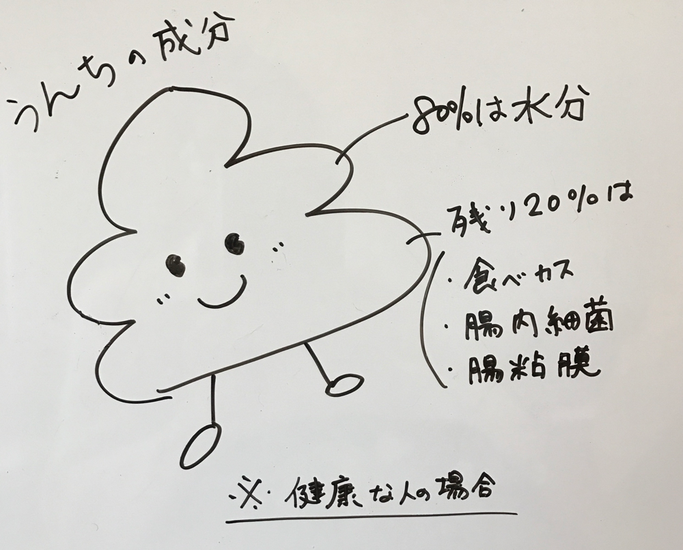 うんちの成分
80%は水分
残り20%は
・食べカス
・腸内細菌
・腸粘膜
※健康な人の場合